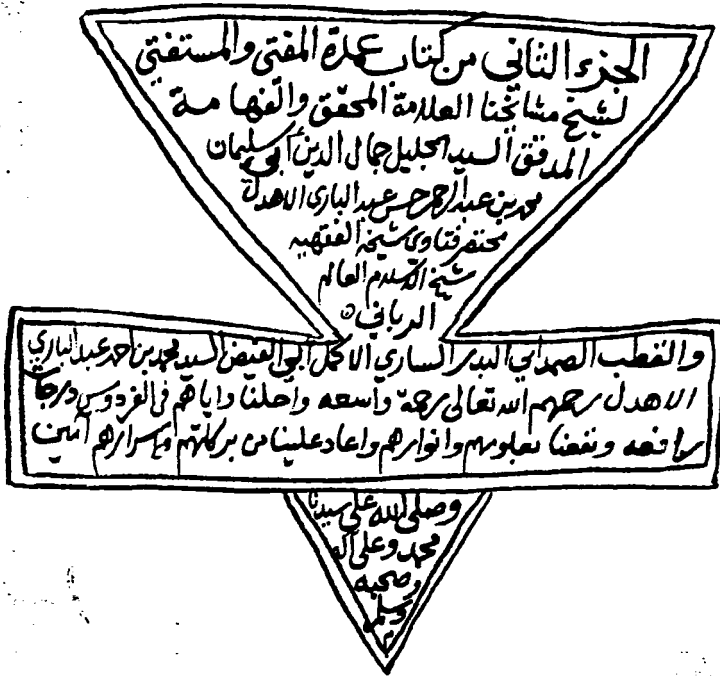 الجزء الثاني من كتاب عمدة المفتي والمستفتي
لشيخ مشائخنا العلامة المحقق والفهامة
المدقق السيد الجليل جمال الدين أبي سليمان
محمد بن عبد الرحمن حسن عبد الباري الاهدل
مختصر فتاوى شيخه الفقهيه
شيخ الاسلام العالم
الرباني
والقطب الصمداني البدر الساري الاكمل أبي الفيض السيد محمد بن احمد عبد الباري
الاهدل رحمهم الله تعالى رحمة واسعه واحلنا واياهم في الفردوس درجات
رافعه ونفعنا بعلومهم وانوارهم واعاد علينا من بركاتهم واسرارهم آمين
وصلى الله على سيدنا
محمد وعلى آله
وصحبه
وسلم